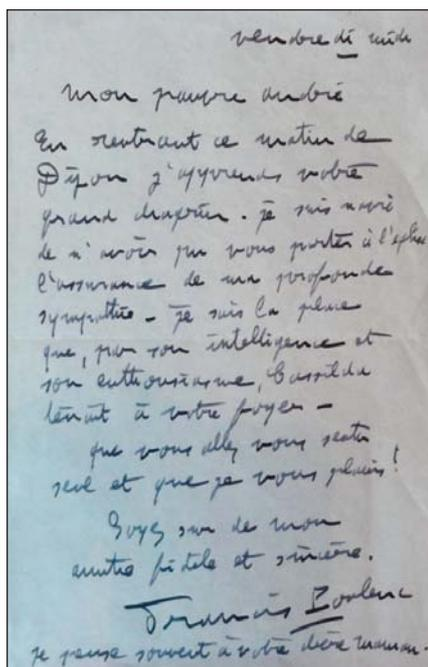 vendredi midi
Mon pauvre André
En rentrant ce matin de
Dijon j'apprends votre
grand chagrin. Je suis navré
de n'avoir pu vous porter à l'église
l'assurance de ma profonde
sympathie - je sais la place
que, par son intelligence et
son enthousiasme, Cassilda
tenait à votre foyer -
que vous allez vous sentir
seul et que je vous plains !
Soyez sur de mon
amitié fidèle et sincère.
Francis Poulenc
je pense souvent à votre chère maman -